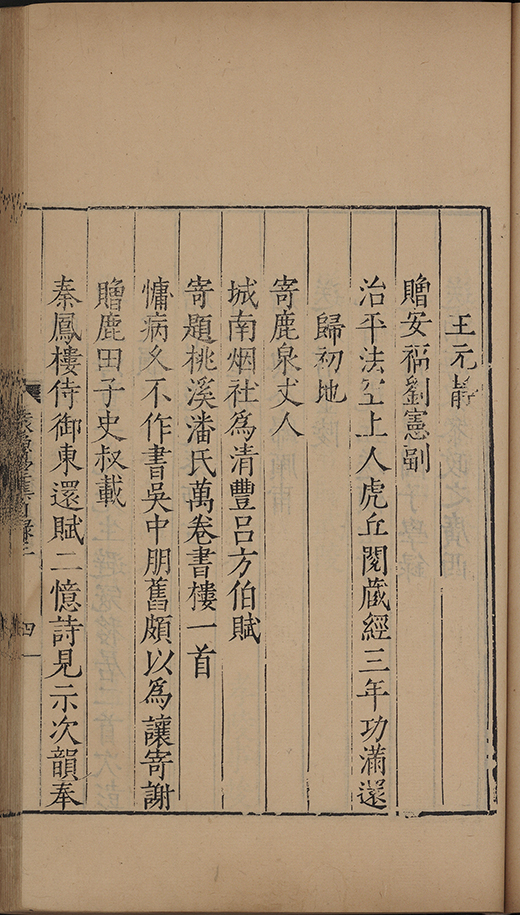 王元靜
贈安福劉憲副
治平法空上人虎丘閱藏經三年功滿還
歸初地
寄鹿泉丈人
城南烟社爲清豐呂方伯賦
寄題桃溪潘氏萬卷書樓一首
慵病久不作書吳中朋舊頗以爲讓寄謝
贈鹿田子史叔載
秦鳳樓侍御東還賦二憶詩見示次韻奉
四